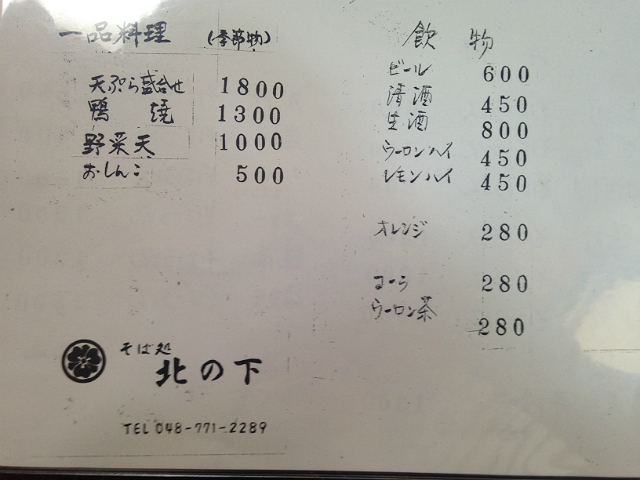 一品料理 (季節物)
天ぷら盛合せ 1800
鴨焼 1300
野菜天 1000
おしんこ 500
飲物
ビール 600
清酒 450
生酒 800
ウーロンハイ 450
レモンハイ 450
オレンジ 280
コーラ 280
ウーロン茶 280
そば処
北の下
TEL 048-771-2289